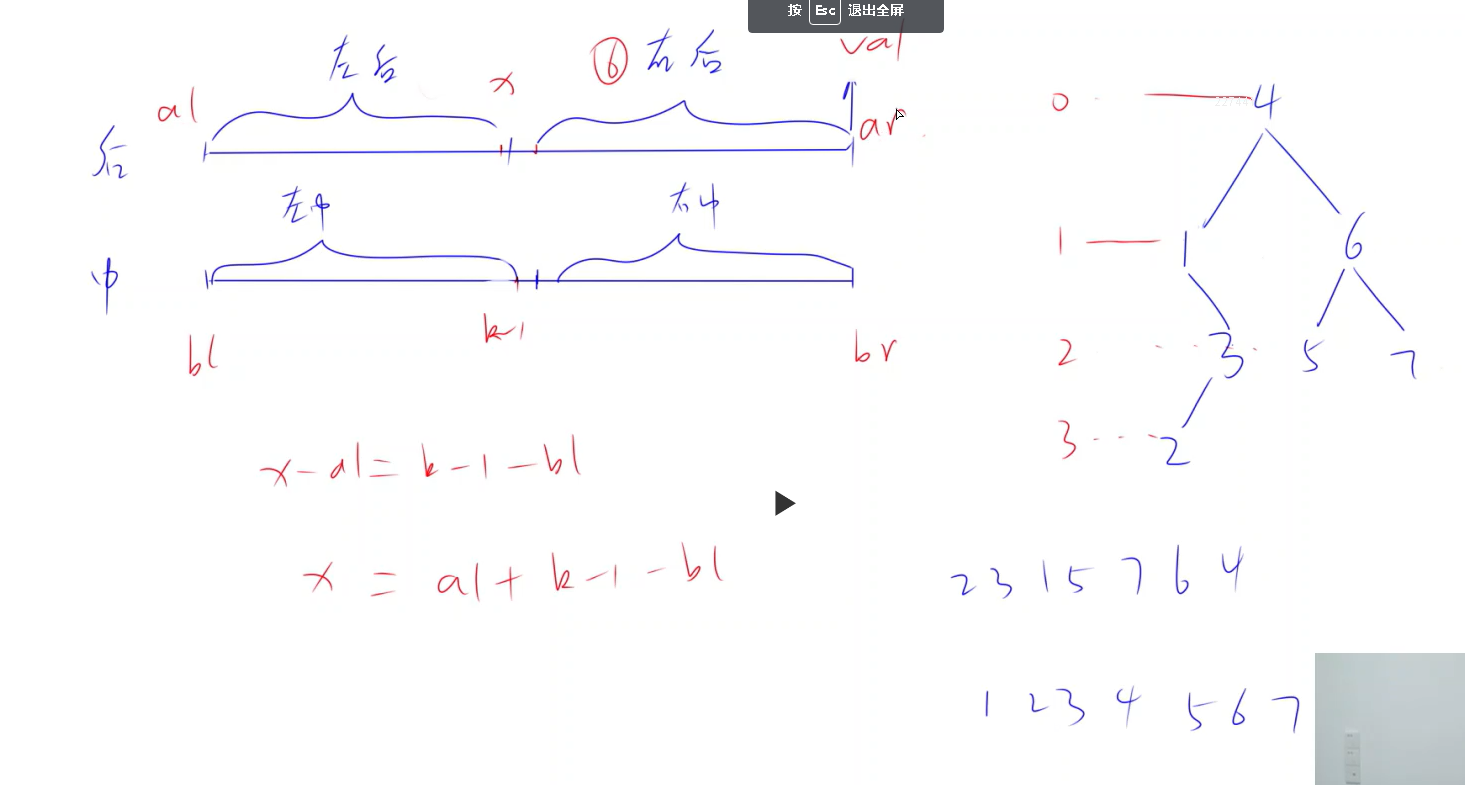 按 Esc 退出全屏
左后 x ⑥ 右后 val
al ar
后
左中 右中
中
bl k-1 br
x-al=k-1-bl
x = al+k-1-bl
0 4
1 1 6
2 3 5 7
3 2
2 3 1 5 7 6 4
1 2 3 4 5 6 7